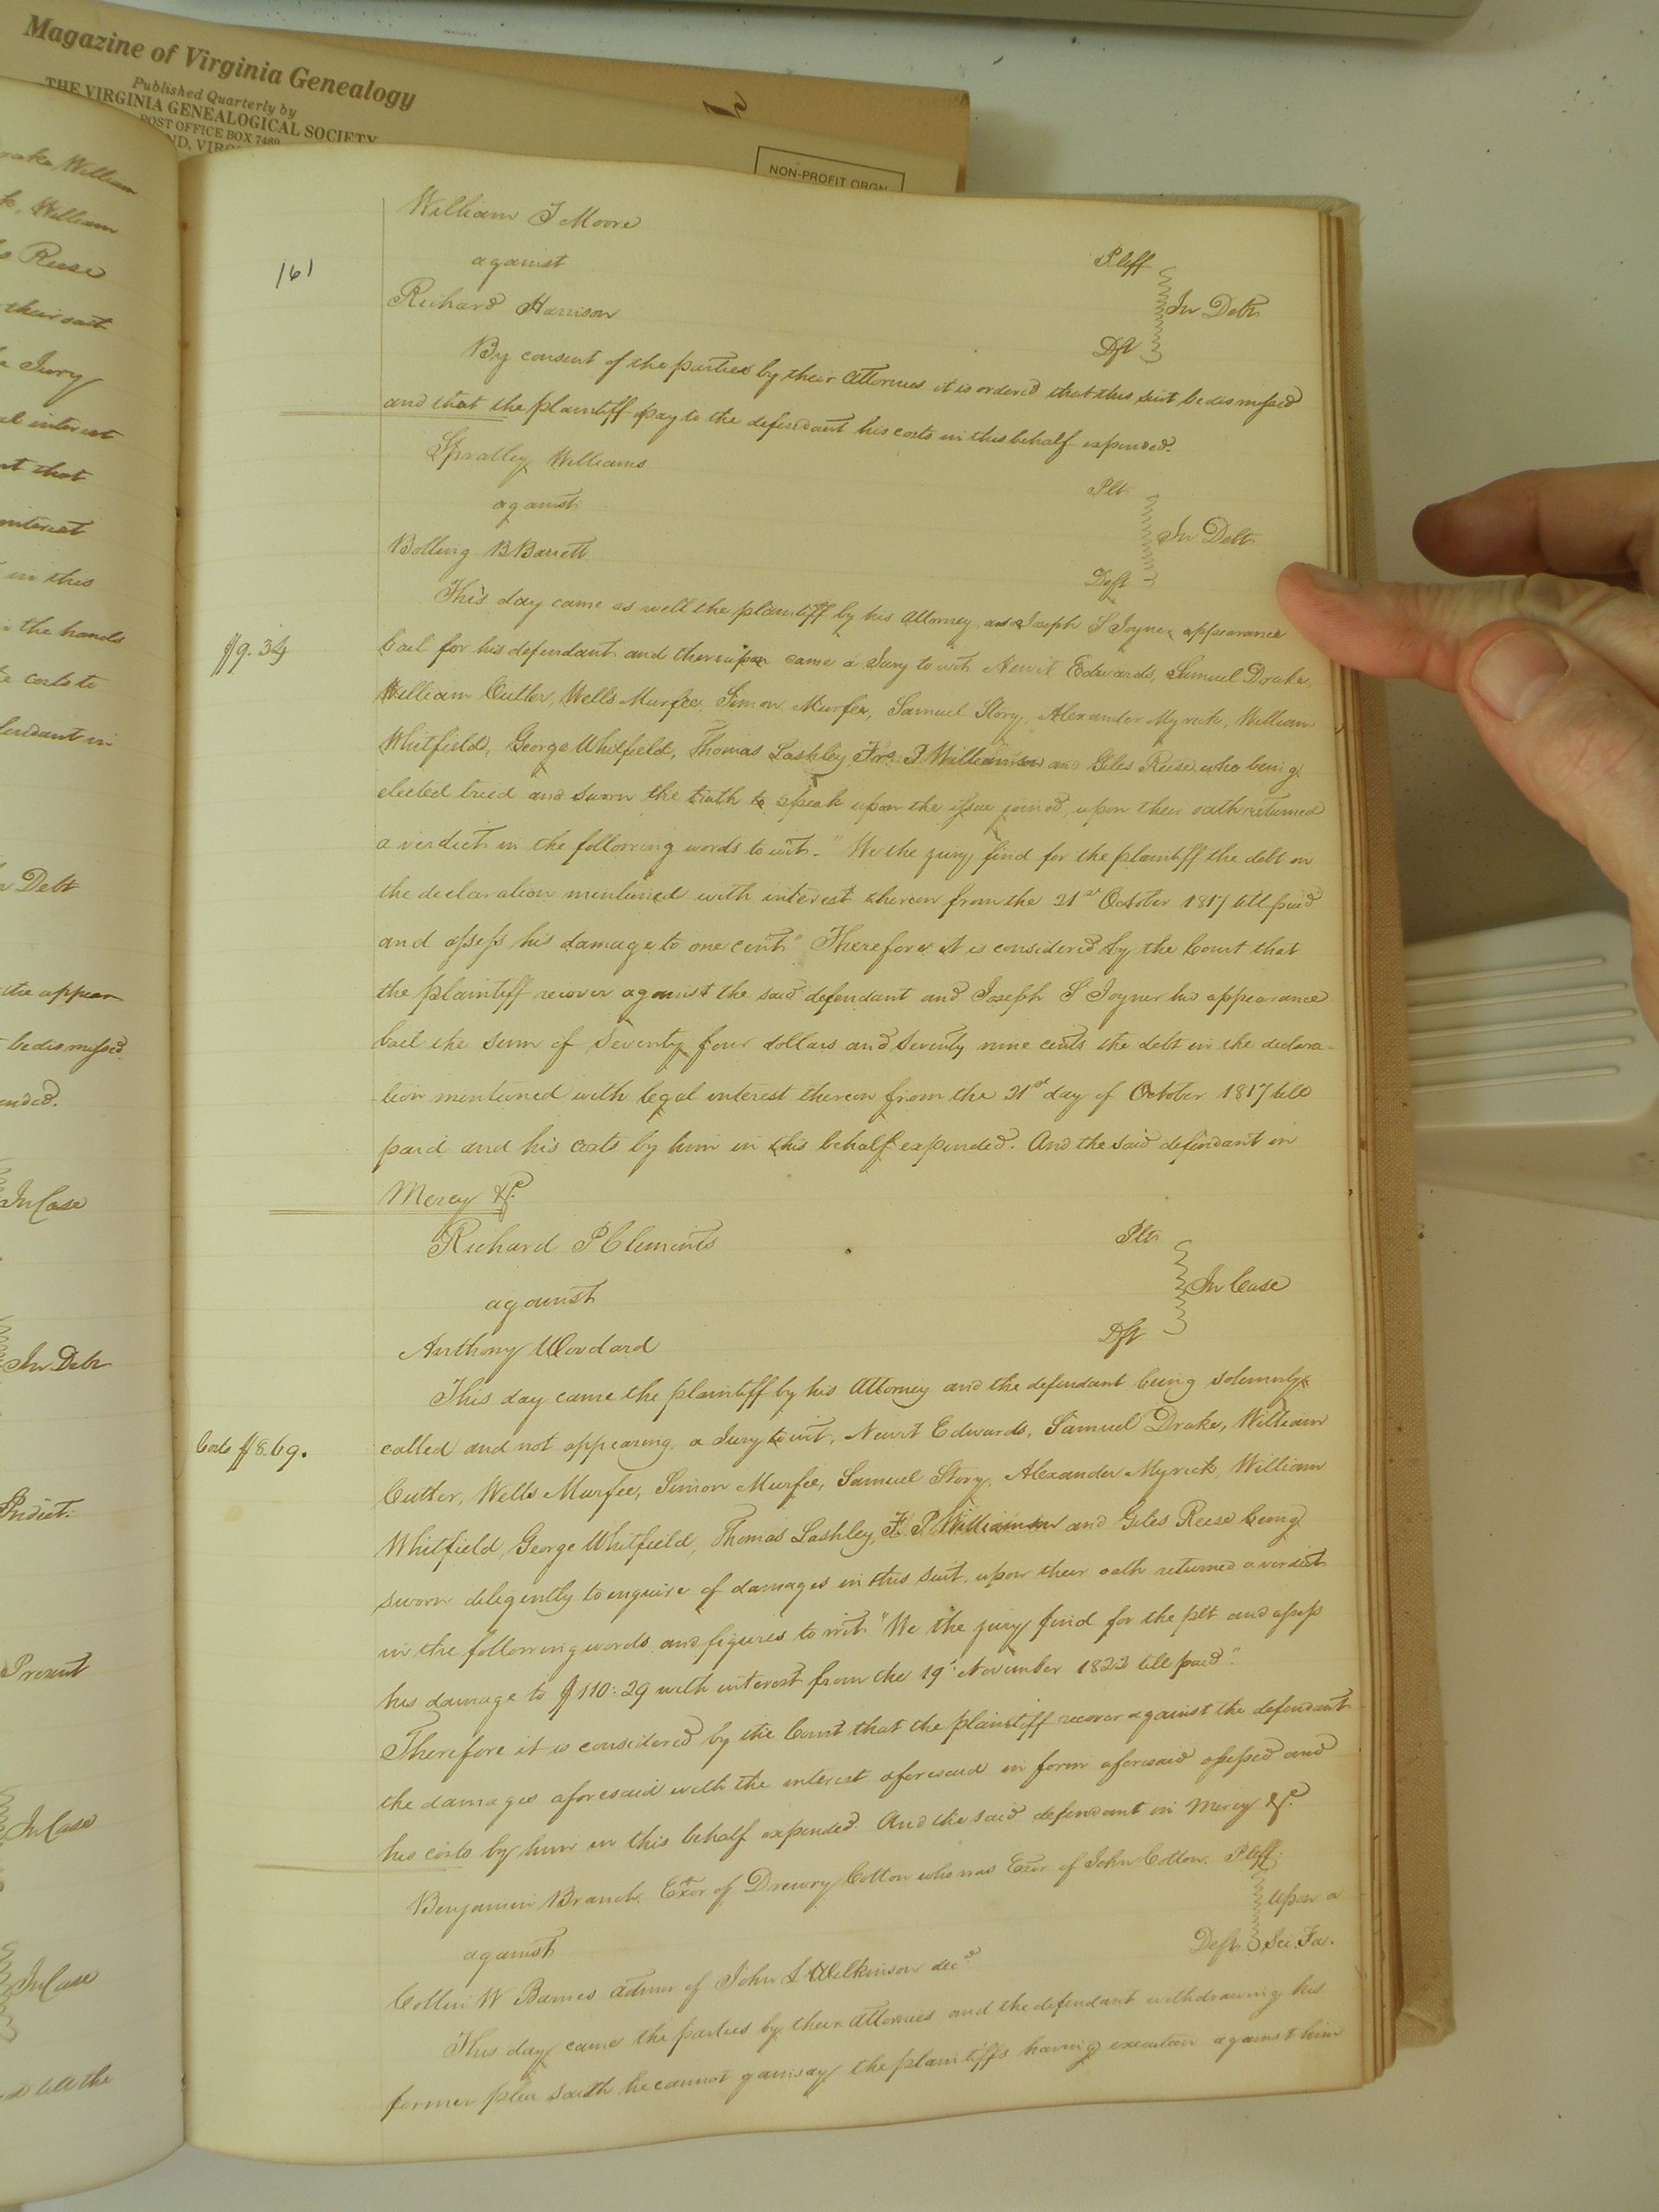 Magazine of Virginia Genealogy
Published Quarterly by
THE VIRGINIA GENEALOGICAL SOCIETY
POST OFFICE BOX 7469
NON-PROFIT ORGN
William
William
Reese
their oath
Jury
interest
that
interest
in this
the hands
costs to
defendant in
Debt
appear
be dismissed.
In Case
In Debt
Present
In Case
In Case
till the
161
William T Moore
Pltff
against
In Debt
Richard Harrison
Dft
By consent of the parties by their Attornies it is ordered that this suit be dismissed
and that the plaintiff pay to the defendant his costs in this behalf expended.
Spratley Williams
Plt
against
In Debt
Bolling B Barrett
Deft
This day came as well the plaintiff by his Attorney as Joseph S Joyner appearance
$9.34
bail for his defendant and thereupon came a Jury to wit Newit Edwards, Samuel Drake,
William Cutler, Wells Murfee, Simon Murfee, Samuel Story, Alexander Myrick, William
Whitfield, George Whitfield, Thomas Lashley, Fras P Williamson and Giles Reese who being
elected tried and sworn the truth to speak upon the issue joined, upon their oath returned
a verdict in the following words to wit. "We the jury find for the plaintiff the debt in
the declaration mentioned with interest thereon from the 21st October 1817 till paid
and assess his damage to one cent" Therefore it is considered by the Court that
the plaintiff recover against the said defendant and Joseph S Joyner his appearance
bail the sum of Seventy four dollars and Seventy nine cents the debt in the declara-
tion mentioned with legal interest thereon from the 21st day of October 1817 till
paid and his costs by him in this behalf expended. And the said defendant in
Mercy &c.
Richard P Clements
Plt
In Case
against
Anthony Woodard
Dft
This day came the plaintiff by his Attorney and the defendant being solemnly
Costs $8.69.
called and not appearing, a Jury to wit, Newit Edwards, Samuel Drake, William
Cutler, Wells Murfee, Simon Murfee, Samuel Story, Alexander Myrick, William
Whitfield, George Whitfield, Thomas Lashley, F. P. Williamson and Giles Reese being
sworn diligently to enquire of damages in this suit, upon their oath returned a verdict
in the following words and figures to wit "We the jury find for the plt and assess
his damage to $110:29 with interest from the 19th November 1822 till paid".
Therefore it is considered by the Court that the plaintiff recover against the defendant
the damages aforesaid with the interest aforesaid in form aforesaid assessed and
his costs by him in this behalf expended. And the said defendant in Mercy &c.
Benjamin Branch Exor of Drewry Cotton who was Exor of John Cotton. Pltff
Upon a
against
Deft Sci. Fa.
Collin W Barnes Admr of John S Wilkinson decd
This day came the parties by their attornies and the defendant withdrawing his
former plea saith he cannot gainsay the plaintiffs having execution against him